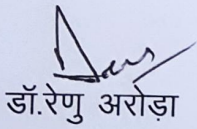 डॉ.रेणु अरोड़ा